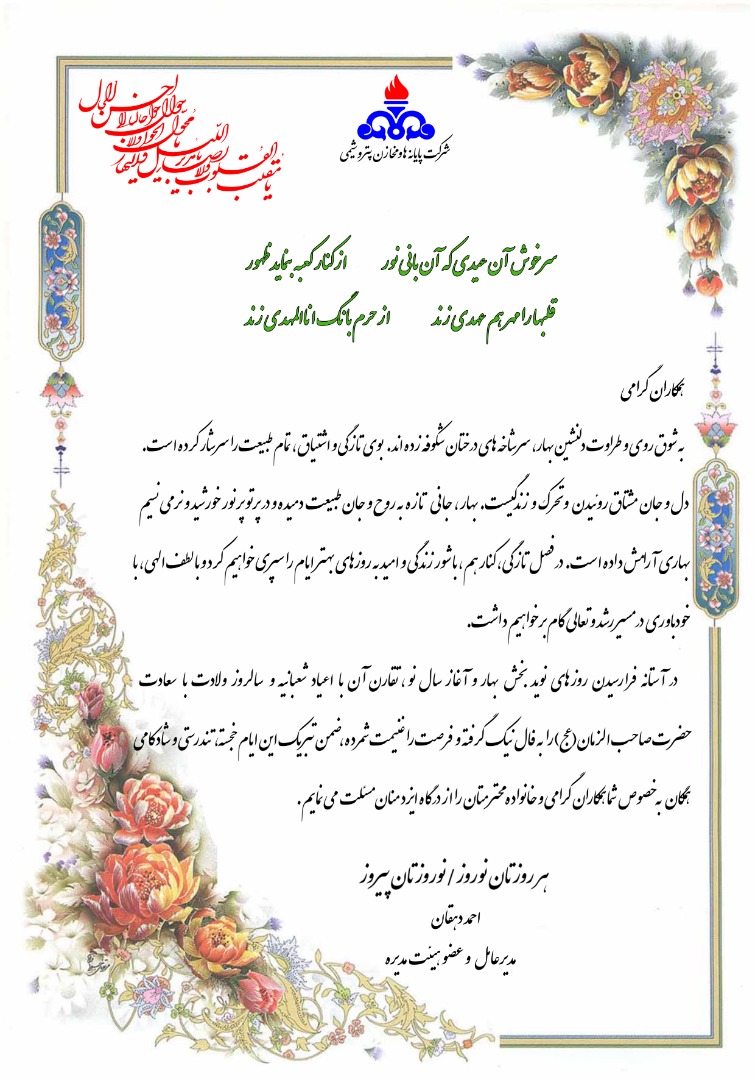 یا مقلب القلوب و الابصار
یا مدبر اللیل و النهار
یا محول الحول و الاحوال
حول حالنا الی احسن الحال
شرکت پایانه ها و مخازن پتروشیمی
سرخوش آن عیدی که آن بانی نور از کنار کعبه بنماید ظهور
قلبها را مهر هم عهدی زند از حرم بانگ انا المهدی زند
همکاران گرامی
به شوق روی و طراوت دلنشین بهار، سرشاخه های درختان شکوفه زده اند. بوی تازگی و اشتیاق، تمام طبیعت را سرشار کرده است.
دل و جان مشتاق روئیدن و تحرک و زندگیست. بهار، جانی تازه به روح و جان طبیعت دمیده و در پرتو پر نور خورشید و نرمی نسیم
بهاری آرامش داده است. در فصل تازگی، کنار هم، با شور زندگی و امید به روزهای بهتر ایام را سپری خواهیم کرد و با لطف الهی، با
خودباوری در مسیر رشد و تعالی گام برخواهیم داشت.
در آستانه فرارسیدن روزهای نوید بخش بهار و آغاز سال نو، تقارن آن با اعیاد شعبانیه و سالروز ولادت با سعادت
حضرت صاحب الزمان (عج) را به فال نیک گرفته و فرصت را غنیمت شمرده، ضمن تبریک این ایام خجسته، تندرستی و شادکامی
همگان به خصوص شما همکاران گرامی و خانواده محترمتان را از درگاه ایزد منان مسئلت می نمایم.
هر روزتان نوروز / نوروزتان پیروز
احمد دهقان
مدیرعامل و عضو هیئت مدیره